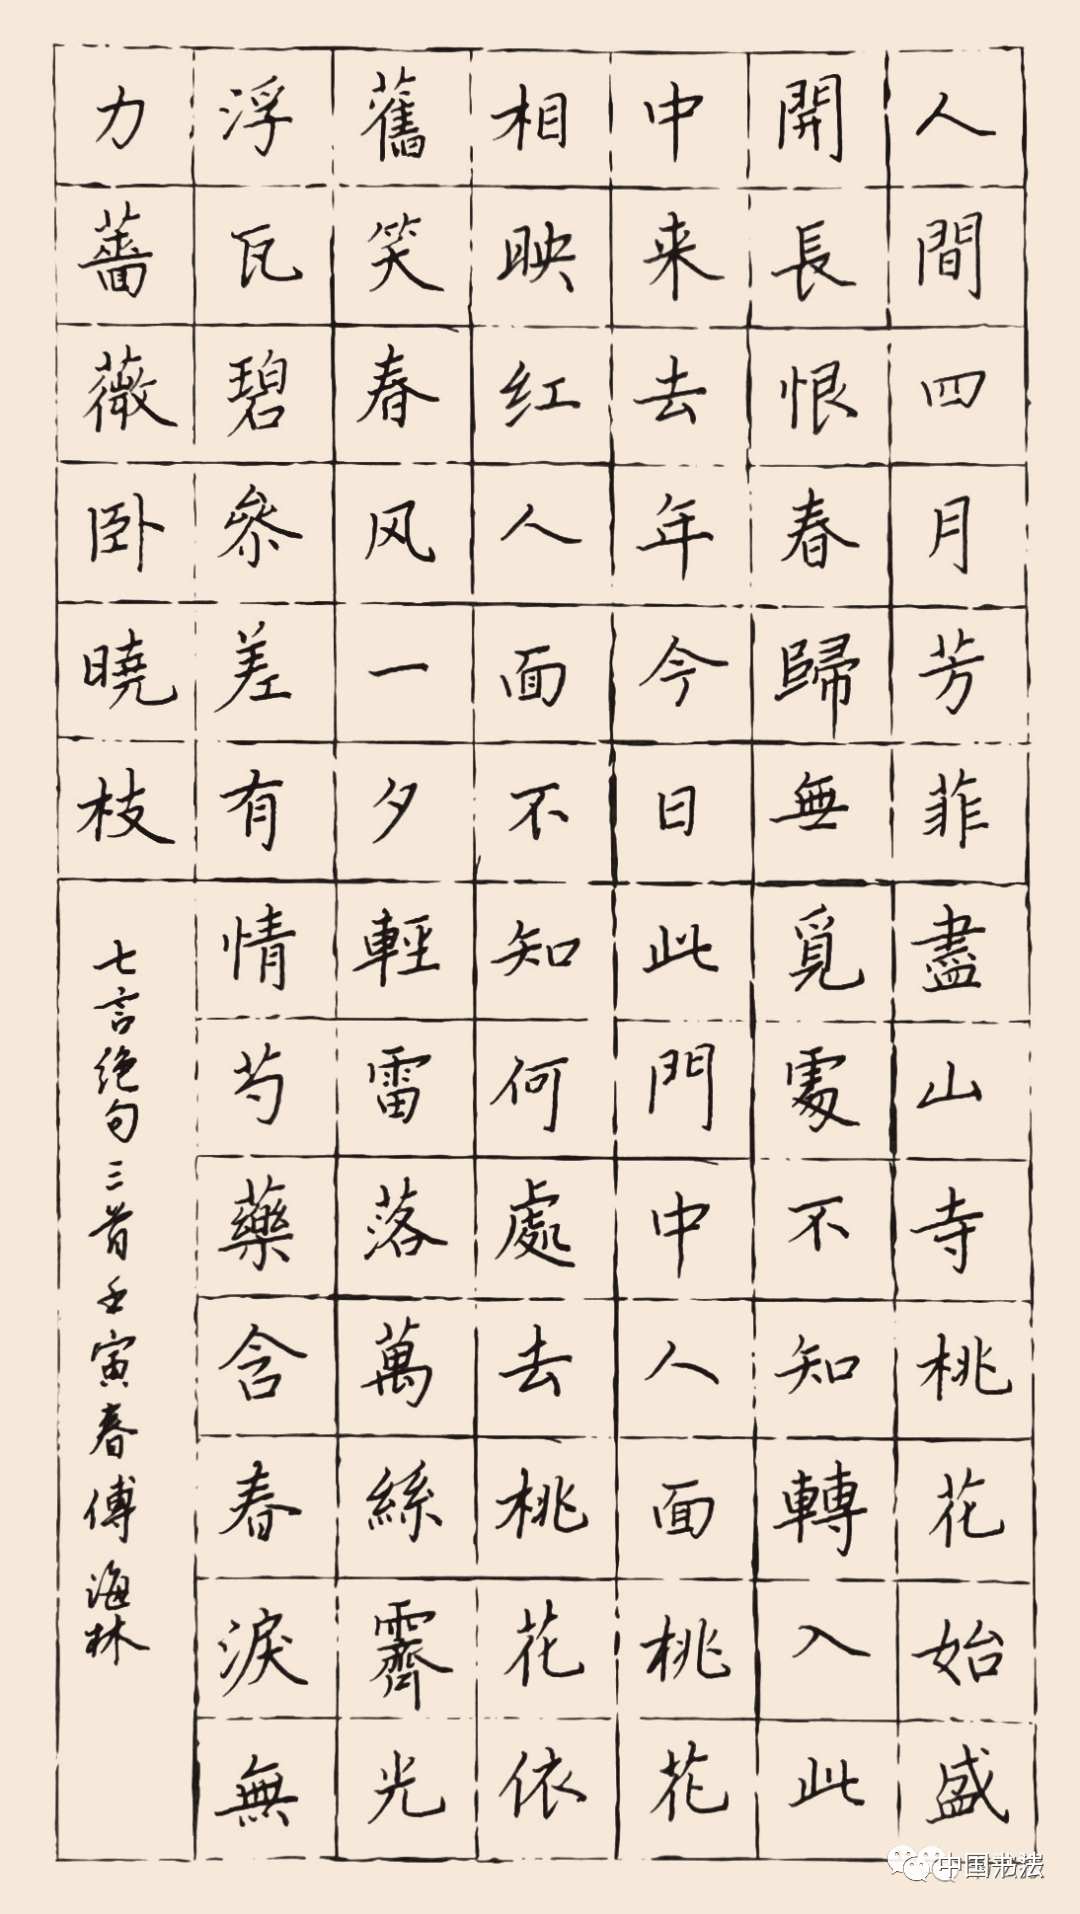 人間四月芳菲盡山寺桃花始盛
開長恨春歸無覓處不知轉入此
中来去年今日此門中人面桃花
相映红人面不知何處去桃花依
舊笑春风一夕輕雷落萬絲霽光
浮瓦碧參差有情芍藥含春淚無
力薔薇卧曉枝
七言绝句三首壬寅春傅海林
中国书法